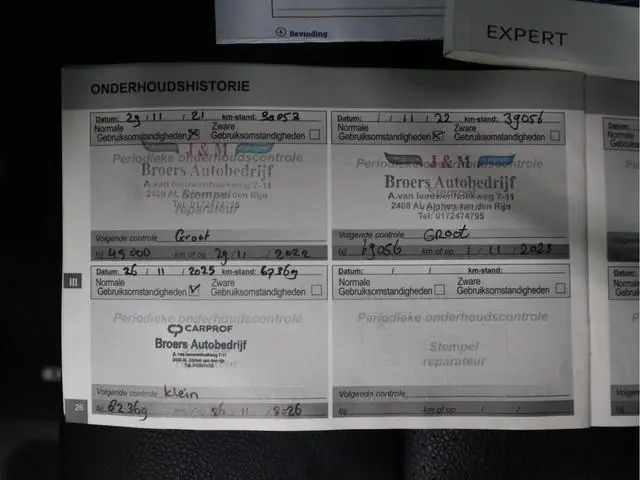 Bevinding
EXPERT
ONDERHOUDSHISTORIE
Datum: 29 / 11 / 21 km-stand:
Normale Gebruiksomstandigheden Zware Gebruiksomstandigheden
Periodieke onderhoudscontrole
J&M
Broers Autobedrijf
A.van leeuwenhoekweg 7-11
2408 AL Alphen aan den Rijn
Tel: 0172474795
Stempel
reparateur
Volgende controle Groot
bij 45000 km of op 29 / 11 / 2022
Datum: 1 / 11 / 22 km-stand: 39056
Normale Gebruiksomstandigheden Zware Gebruiksomstandigheden
Periodieke onderhoudscontrole
J&M
Broers Autobedrijf
A.van leeuwenhoekweg 7-11
2408 AL Alphen aan den Rijn
Tel: 0172474795
Stempel
Volgende controle GROOT
bij 69056 km of op 1 / 11 / 2023
III
Datum: 26 / 11 / 2025 km-stand: 67369
Normale Gebruiksomstandigheden Zware Gebruiksomstandigheden
Periodieke onderhoudscontrole
CARPROF
Broers Autobedrijf
A. van leeuwenhoekweg 7-11
2408 AL Alphen aan den Rijn
Tel: 0172474795
Volgende controle klein
bij 82369 26 / 11 / 2026
Datum: / / km-stand:
Normale Gebruiksomstandigheden Zware Gebruiksomstandigheden
Periodieke onderhoudscontrole
Stempel
reparateur
Volgende controle
bij km of op / /
26